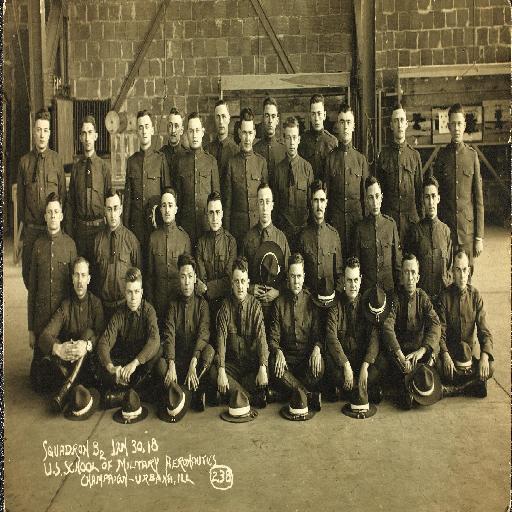 SQUADRON B2 JAN 30, 18
U.S. SCHOOL OF MILITARY AERONAUTICS
CHAMPAIGN-URBANA, ILL
238